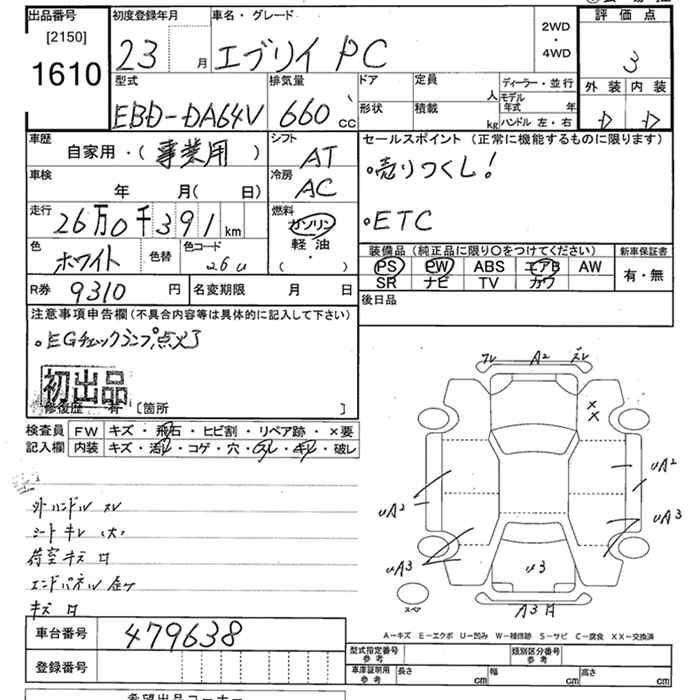 出品番号 初度登録年月 車名・グレード 2WD・4WD 評価点
[2150] 1610 23 月 エブリイ PC 3
型式 排気量 ドア 定員 人 ディーラー・並行 外装 内装
EBD-DA64V 660 cc 形状 積載 kg モデル年式 年 ハンドル 左・右 D D
車歴 自家用・(事業用) シフト AT セールスポイント (正常に機能するものに限ります)
車検 年 月( 日) 冷房 AC 。売りつくし!
走行 26万0千391km 燃料 ガソリン 軽油 ・ ( ) 。ETC
色 ホワイト 色替 色コード 26u 装備品 (純正品に限り○をつけてください) 新車保証書
PS PW ABS エアB AW 有・無
SR ナビ TV カワ
R券 9310 円 名変期限 月 日 後日品
注意事項申告欄(不具合内容等は具体的に記入して下さい)
。EGチェックランプ点灯
初出品
修復歴 有 [箇所 ]
検査員 FW キズ・飛石・ヒビ割・リペア跡・×要
記入欄 内装 キズ・汚れ・コゲ・穴・スレ・キレ・破レ
外ハンドル スレ
シートキレ (大)
荷室キズ 凹
エンドパネル
キズ 凹
ワレ A2 スレ
× ×
uA2
uA2
uA3
uA3
u3
スペア
A3凹
A-キズ E-エクボ U-凹み W-補修跡 S-サビ C-腐食 XX-交換済
車台番号 479638
型式指定番号 参考 類別区分番号 参考
登録番号 車庫証明用 参考 長さ cm 幅 cm 高さ cm
希望出品コーナー